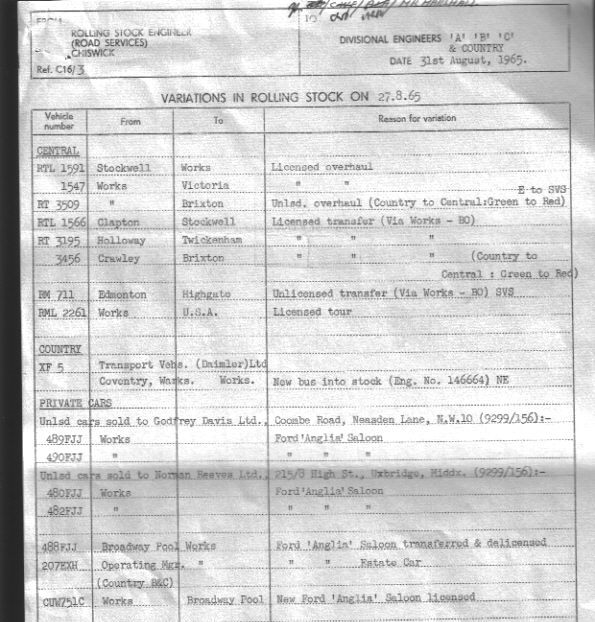 MR MARSHALL
TO
ROLLING STOCK ENGINEER
(ROAD SERVICES)
CHISWICK
Ref. C16/3
DIVISIONAL ENGINEERS 'A' 'B' 'C'
& COUNTRY
DATE 31st August, 1965.
VARIATIONS IN ROLLING STOCK ON 27.8.65
Vehicle number From To Reason for variation
CENTRAL
RTL 1591 Stockwell Works Licensed overhaul
1547 Works Victoria " "
E to SVS
RT 3509 " Brixton Unlsd. overhaul (Country to Central:Green to Red)
RTL 1566 Clapton Stockwell Licensed transfer (Via Works - BO)
RT 3195 Holloway Twickenham " " "
3456 Crawley Brixton " " " (Country to
Central : Green to Red)
RM 711 Edmonton Highgate Unlicensed transfer (Via Works - BO) SVS
RML 2261 Works U.S.A. Licensed tour
COUNTRY
XF 5 Transport Vehs. (Daimler)Ltd
Coventry, Warks. Works. New bus into stock (Eng. No. 146664) NE
PRIVATE CARS
Unlsd cars sold to Godfrey Davis Ltd., Coombe Road, Neasden Lane, N.W.10 (9299/156):-
489FJJ Works Ford 'Anglia' Saloon
490FJJ " " " "
Unlsd cars sold to Norman Reeves Ltd., 215/8 High St., Uxbridge, Middx. (9299/156):-
480FJJ Works Ford 'Anglia' Saloon
482FJJ " " " "
488FJJ Broadway Pool Works Ford 'Anglia' Saloon transferred & delicensed
207EXH Operating Mgr. " " " Estate Car
(Country B&C)
CUW751C Works Broadway Pool New Ford 'Anglia' Saloon licensed